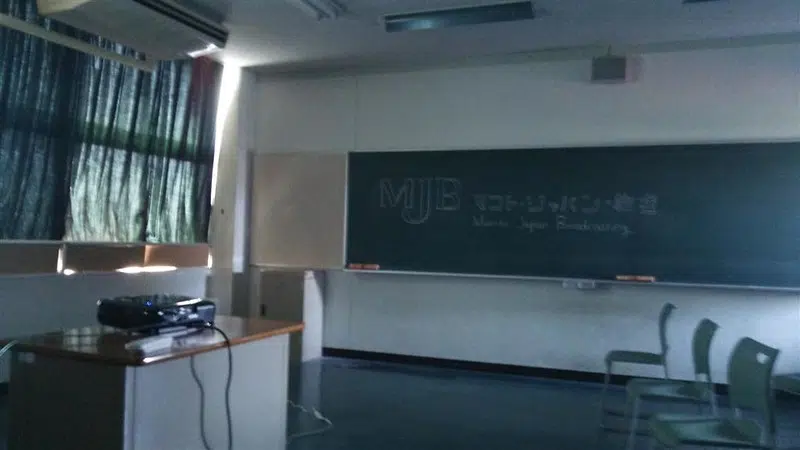 MJB マコト・ジャパン・放送
Makoto Japan Broadcasting